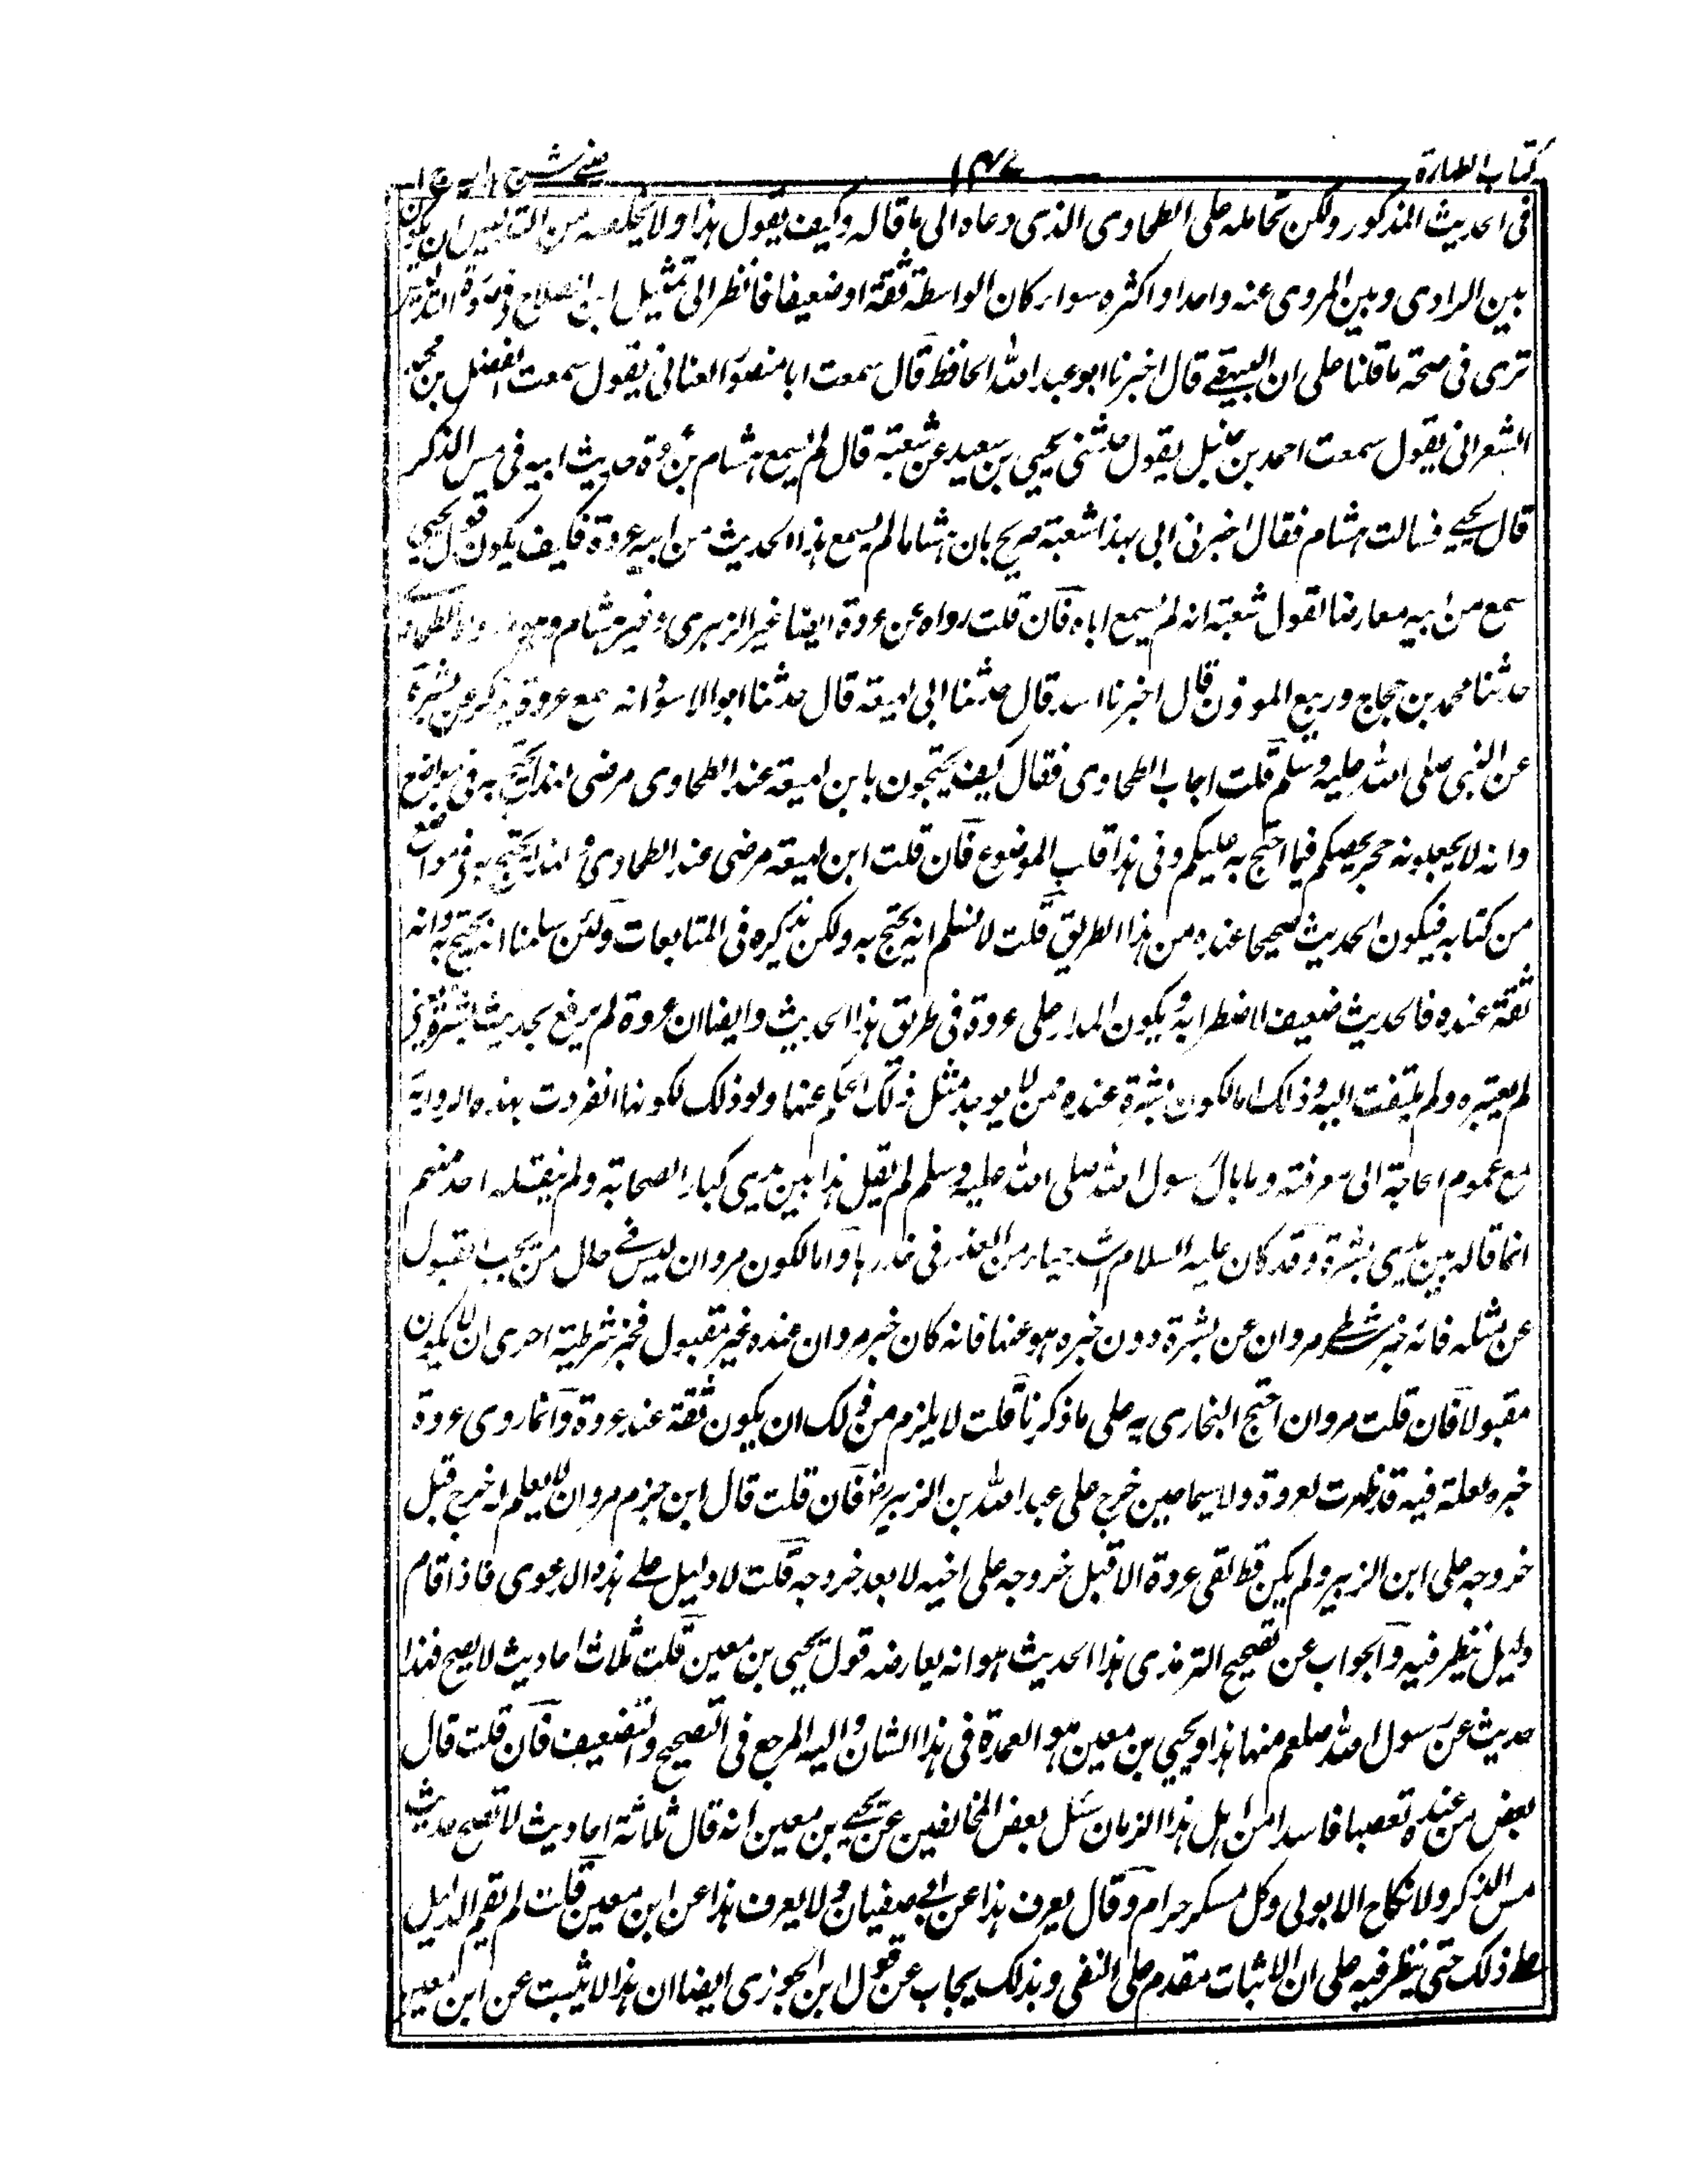 كتاب الطهارة
١٤٧
عينى شرح هداية ج ١
فى الحديث المذكور ولكن تحامله على الطحاوى الذى دعاه الى ما قاله وكيف يقول هذا ولا يخلصه من التدليس ان يكون
بين الراوى وبين المروى عنه واحدا او اكثره سواء كان الواسطة ثقة او ضعيفا فانظر الى تمثيل ابن الصلاح
ترى فى صحة ما قلنا على ان البيهقے قال اخبرنا ابو عبد الله الحافظ قال سمعت ابا منصور العنانى يقول سمعت الفضل بن محمد
الشعرانى يقول سمعت احمد بن حنبل يقول حدثنى يحيى بن سعيد عن شعبة قال لم يسمع هشام بن عروة حديث ابيه فى مس الذكر
قال يحيے فسالت هشام فقال اخبرنى ابى بهذا شعبة صريح بان هشاما لم يسمع هذا الحديث من ابيه عروة فكيف يكون قول يحيى
سمع من ابيه معارضا لقول شعبة انه لم يسمع اباه فان قلت رواه عن عروة ايضا غير الزهرى وغير هشام
حدثنا محمد بن حجاج وربيع الموذن قال اخبرنا اسد قال حدثنا ابى لهيعة قال حدثنا ابو الاسود انه سمع عروة يذكر عن بشرة
عن النبى صلى الله عليه وسلم قلت اجاب الطحاوى فقال كيف يحتجون بابن لهيعة عند الطحاوى مرضى لهذا يحتج به فى مواضع
وانه لا يجعلونه حجر يحصكم فيما احتج به عليكم وفى هذا قلب الموضوع فان قلت ابن لهيعة مرضى عند الطحاوى ولهذا يحتج به فى مواضع
من كتابه فيكون الحديث صحيحا عنده من هذا الطريق قلت لا نسلم انه يحتج به ولكن يذكره فى المتابعات ولئن سلمنا انه يحتج به وانه
ثقة عنده فالحديث ضعيف لاضطرابه ويكون المدار على عروة فى طريق هذا الحديث وايضا ان عروة لم يرفع بحديث بشرة
لم يعتبره ولم يلتفت اليه وذلك اما لكون بشرة عنده ممن لا يوخذ مثل ذلك الحكم عنها ولو ذلك لكونها انفردت بهذه الرواية
مع عموم الحاجة الى معرفته وما بال رسول الله صلى الله عليه وسلم لم يقل هذا بين يدى كبار الصحابة ولم ينقله احد منهم
انما قاله بين يدى بشرة وقد كان عليه السلام اشد حياء من العذر فى خدرها واما لكون مروان ليس فے حال من يجب القبول
عن مثله فانه خبر شرطے مروان عن بشرة دون خبره هو عنها فانه كان خبر مروان عنده غير مقبول فخبر شرطية احرى ان لا يكون
مقبولا فان قلت مروان احتج البخارى به على ما ذكرنا قلت لا يلزم من ذلك ان يكون ثقة عند عروة وانما روى عروة
خبره لعلة فيه قد ظهرت لعروة ولا سيما حين خرج على عبد الله بن الزبير رض فان قلت قال ابن حزم مروان لا يعلم له خرج قبل
خروجه على ابن الزبير ولم يكن قط لقى عروة الا قبل خروجه على اخيه لا بعد خروجه قلت لا دليل على هذه الدعوى فاذا قام
دليل ينظر فيه والجواب عن تصحيح الترمذى هذا الحديث هو انه يعارضه قول يحيى بن معين قلت ثلاث احاديث لا يصح فهذا
حديث عن رسول الله صلعم منها هذا ويحيى بن معين هو العمدة فى هذا الشان واليه المرجع فى التصحيح والتضعيف فان قلت قال
بعض من عنده تعصبا فاسدا من اهل هذا الزمان سئل بعض المخالفين عن يحيے بن معين انه قال ثلثة احاديث لا تصح حديث
مس الذكر ولا نكاح الا بولى وكل مسكر حرام وقال يعرف هذا عن ابى صفيان ولا يعرف هذا عن ابن معين قلت لم يقم الدليل
على ذلك حتى ينظر فيه على ان الاثبات مقدم على النفى وبذلك يجاب عن قول ابن الجوزى ايضا ان هذا لا يثبت عن ابن معين